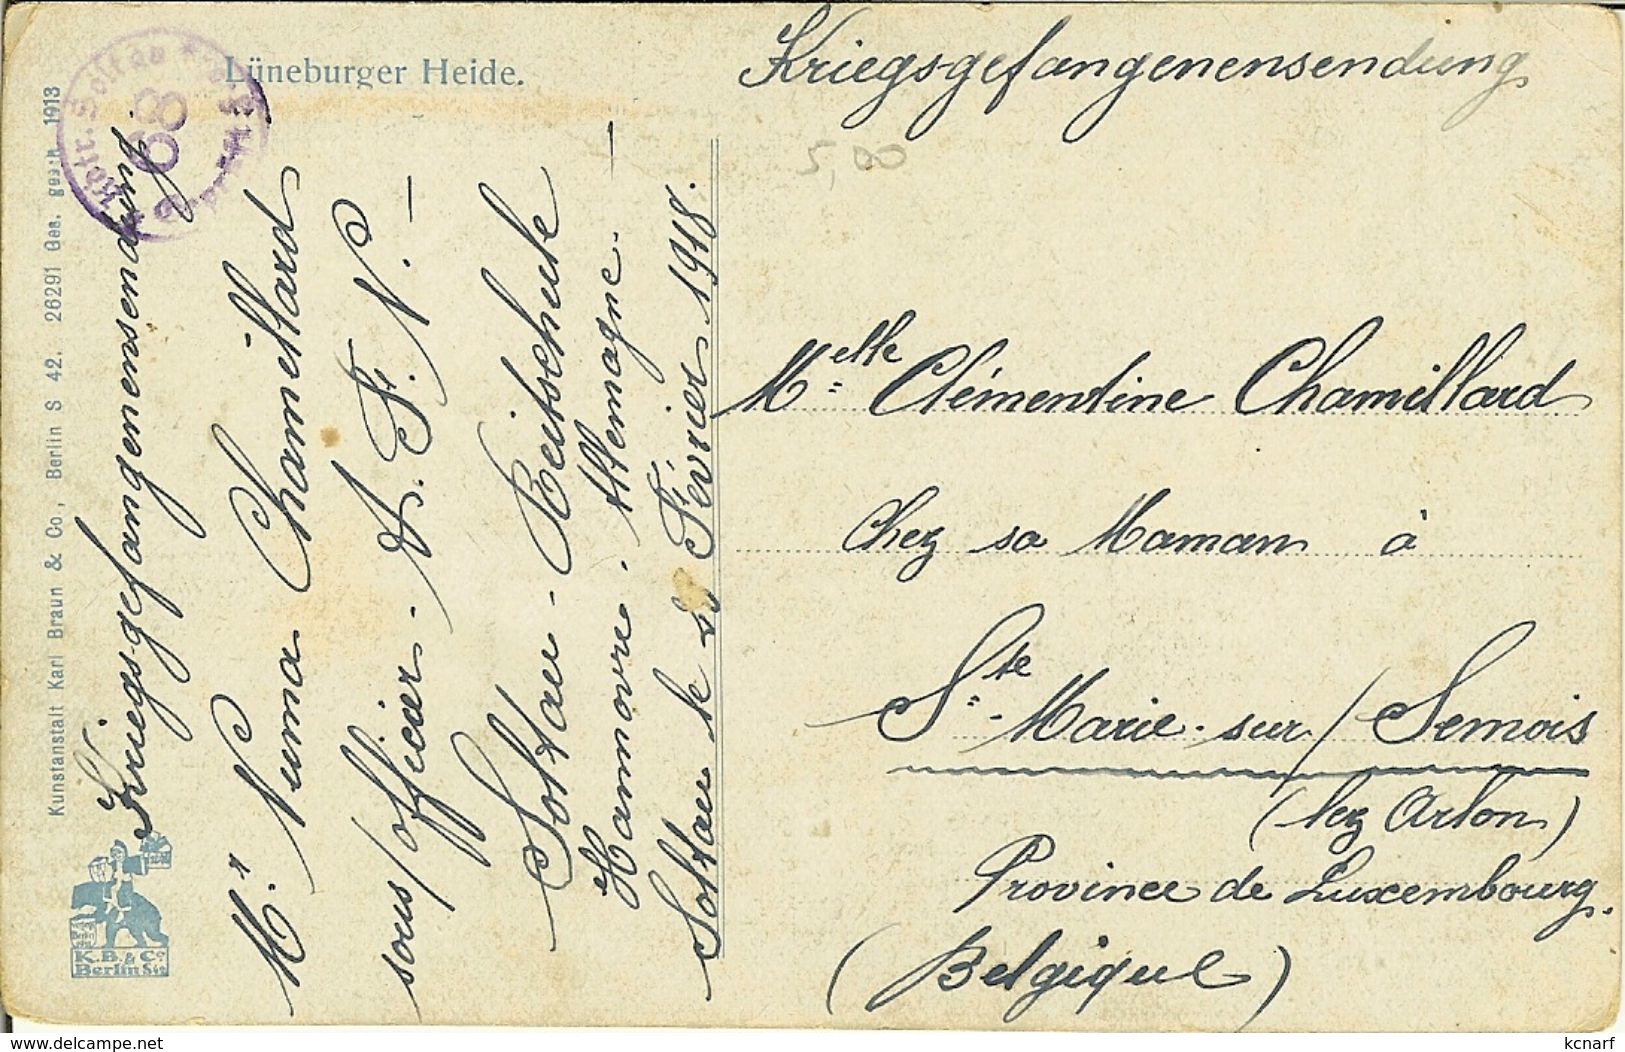 Lüneburger Heide.
Kriegsgefangenensendung
5,00
Kunstanstalt Karl Braun & Co., Berlin S 42. 26291 Ges. gesch. 1913
K.B. & Co
Berlin S42
68
Kriegsgefangenensendung.
Mr. Numa Chamillard
sous/officier. A. F. N. —
Soltau - Reitschule
Hannovre. Allemagne. —
Soltau le Février 1918.
Melle Clémentine Chamillard
Chez sa Maman à
Ste-Marie-sur/Semois
(lez Arlon)
Province de Luxembourg.
(Belgique)
delcampe.net
kcnarf